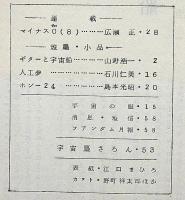 連載
マイナス0(8)……広瀬 正・28
短篇・小品
ギターと宇宙船……山野浩一・2
人工夢……石川仁美・16
ホシ一24……島本光昭・20
宇宙の眼・15
消息・post・58
ファンダム月報・58
宇宙塵さろん・53
表紙・江口まひろ
カット・野町祥太郎ほか